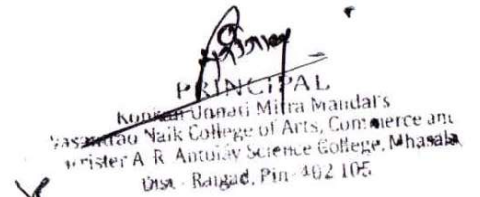 PRINCIPAL
Konkan Unnati Mitra Mandal's
Vasantrao Naik College of Arts, Commerce and
A. R. Antulay Science College, Mhasala
Dist - Raigad, Pin- 402 105